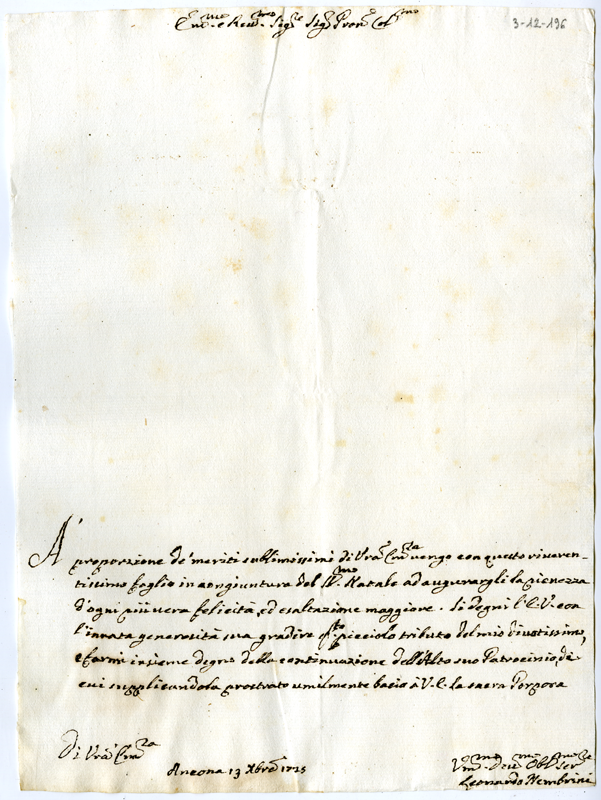 3-12-196
Em.mo e Rev.mo Sig.re Sig.r Pron Col.mo
A' proporzione de' meriti sublimissimi di Vra Em.za vengo con questo riveren-
tissimo foglio in congiuntura del S.mo Natale ad augurargli la pienezza
d'ogni più vera felicità, ed esaltazione maggiore. Si degni l'E.V. con
l'innata generosità sua gradire q.sto picciolo tributo del mio
e farmi insieme degno della continuazione dell'Alto suo Patrocinio, di
cui supplicandola prostrato umilmente bacio à V.E. la sacra Porpora
Di Vra Em.za
Ancona 13 Xbre 1725
Um.mo Dev.mo Obb.mo Ser.re
Leonardo Nembrini